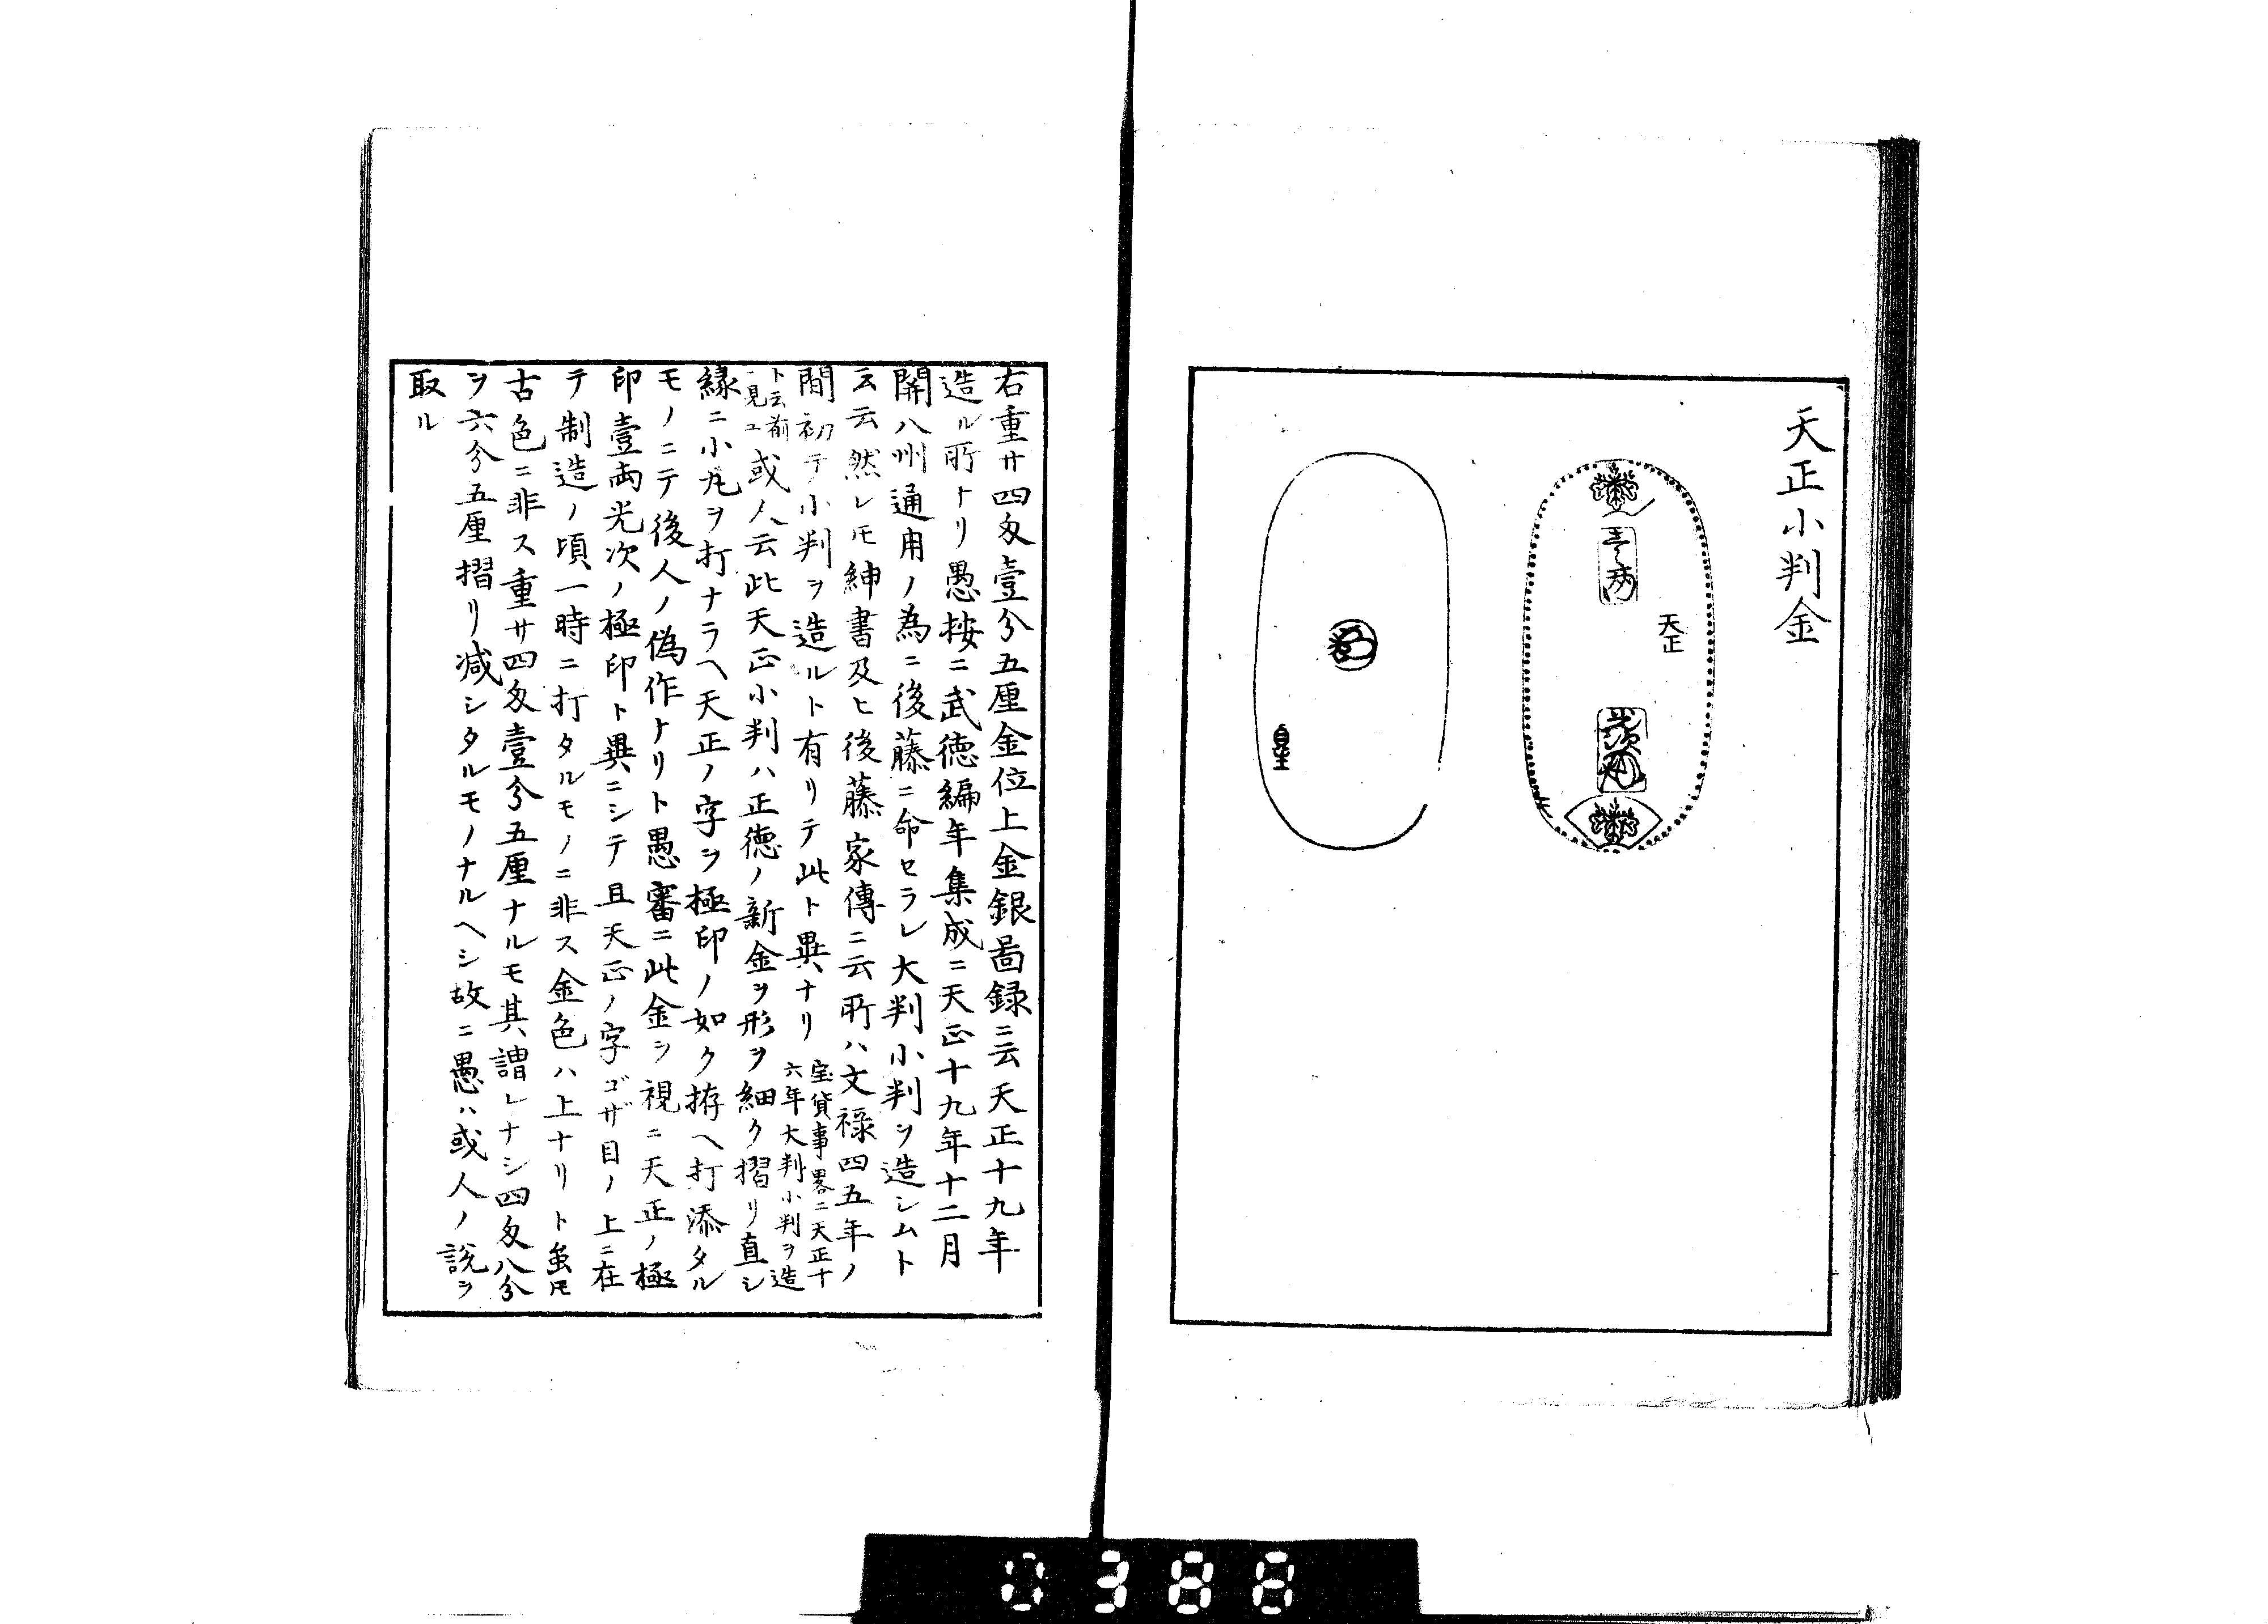 天正小判金
壹両
天正
光次
右重廿四匁壹分五厘金位上金銀啚録ニ云天正十九年
造ル所トリ愚按ニ武徳編年集成ニ天正十九年十二月
関八州通用ノ為ニ後藤ニ命セラレ大判小判ヲ造シムト
云云然レ𪜈紳書及ヒ後藤家傳ニ云所ハ文禄四五年ノ
間初テ小判ヲ造ルト有リテ此ト異ナリ
宝貨事畧ニ天正十
六年大判小判ヲ造
ト云前
ニ見ユ
或人云此天正小判ハ正徳ノ新金ヲ形ヲ細ク摺リ直シ
縁ニ小丸ヲ打ナラヘ天正ノ字ヲ極印ノ如ク拵ヘ打添タル
モノニテ後人ノ偽作ナリト愚審ニ此金ヲ視ニ天正ノ極
印壹両光次ノ極印ト異ニシテ且天正ノ字ゴザ目ノ上ニ在
テ制造ノ頃一時ニ打タルモノニ非ス金色ハ上ナリト虽𪜈
古色ニ非ス重廿四匁壹分五厘ナルモ其謂レナシ四匁八分
ヲ六分五厘摺リ減シタルモノナルヘシ故ニ愚ハ或人ノ説ヲ
取ル
0388